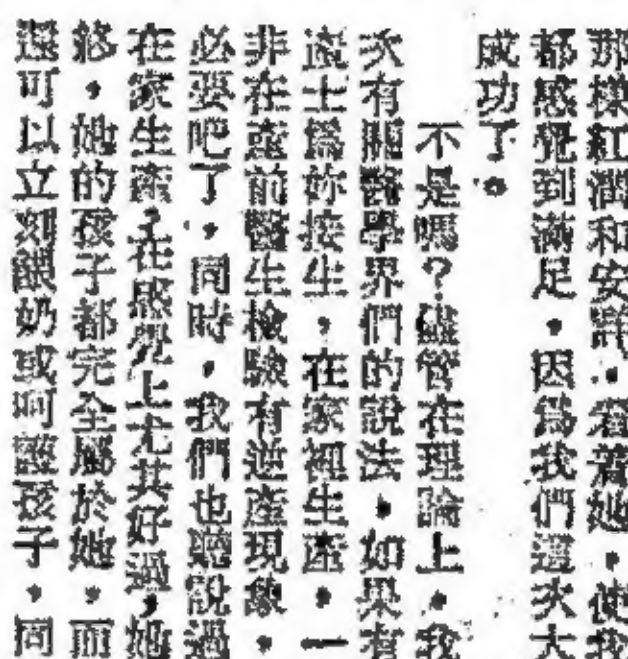 那樣紅潤和安詳，看着她，使我
都感覺到滿足，因爲我們這次大
成功了。
不是嗎？儘管在理論上，我
次有關醫學界們的說法，如果有
產士爲妳接生，在家裡生產，一
非在產前醫生檢驗有逆產現象，
必要吧了，同時，我們也聽說過
在家生產，在感覺上尤其好過，她
後，她的孩子都完全屬於她，而
還可以立刻餵奶或呵護孩子，同